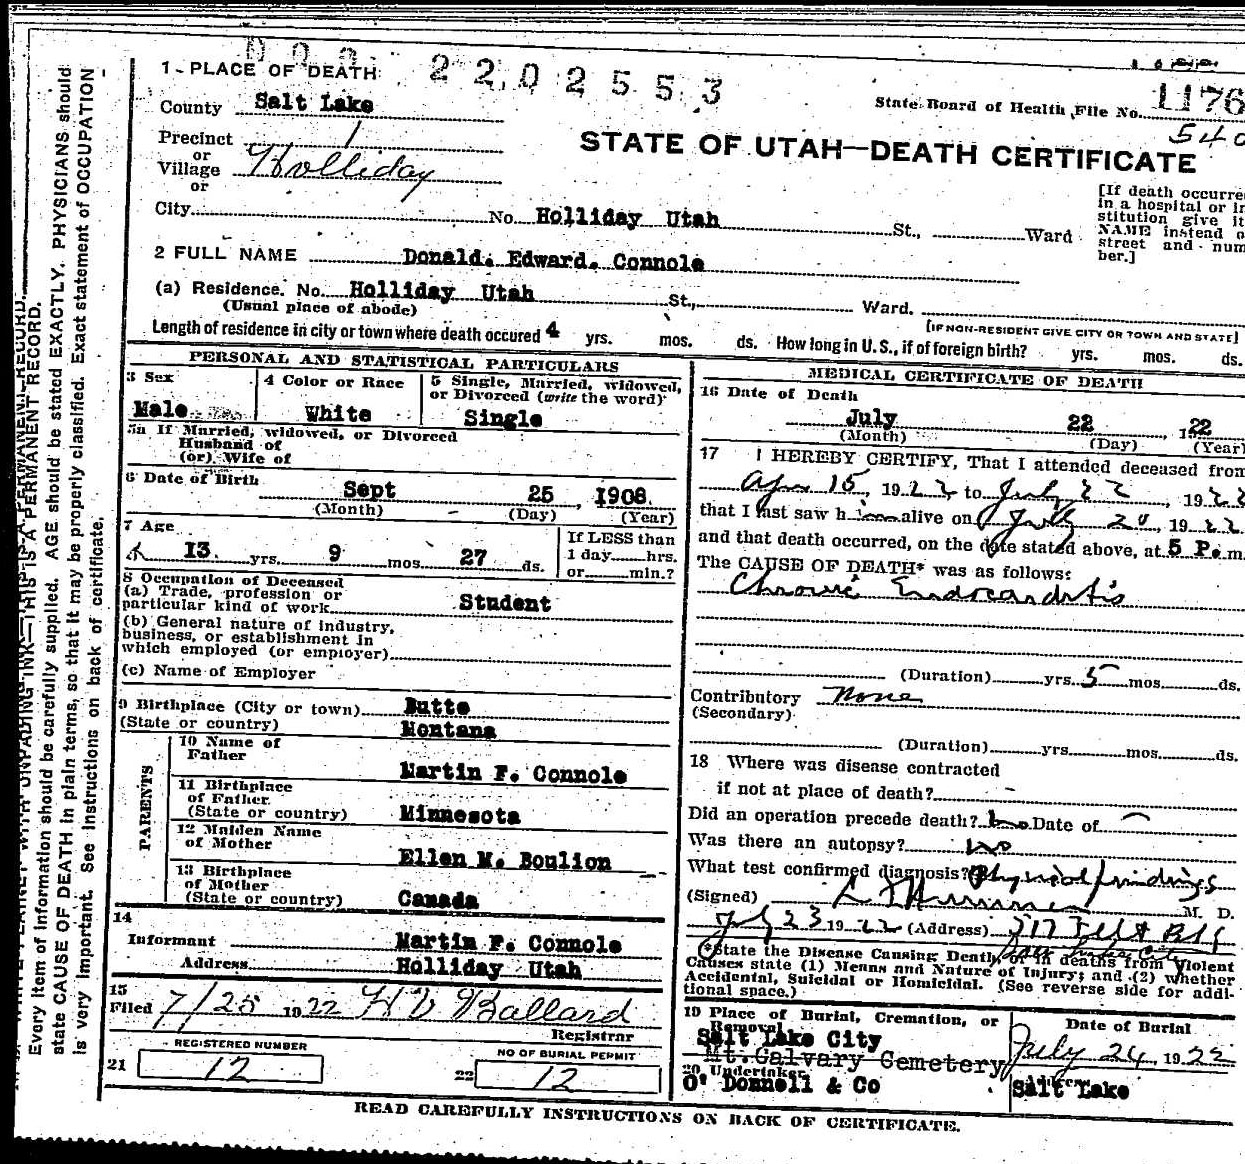 2202553
1 PLACE OF DEATH
County Salt Lake
State Board of Health File No. 1176
540
Precinct 1
or
Village Holliday
or
STATE OF UTAH—DEATH CERTIFICATE
City No. Holliday Utah St., Ward
[If death occurre
in a hospital or in
stitution give it
NAME instead o
street and num
ber.]
2 FULL NAME Donald. Edward. Connole
(a) Residence. No. Holliday Utah St., Ward.
(Usual place of abode)
[IF NON-RESIDENT GIVE CITY OR TOWN AND STATE]
Length of residence in city or town where death occured 4 yrs. mos. ds. How long in U.S., if of foreign birth? yrs. mos. ds.
PERSONAL AND STATISTICAL PARTICULARS
3 Sex
Male
4 Color or Race
White
5 Single, Married, widowed,
or Divorced (write the word)
Single
5a If Married, widowed, or Divorced
Husband of
(or) Wife of
6 Date of Birth Sept 25, 1908.
(Month) (Day) (Year)
7 Age
13 yrs. 9 mos. 27 ds.
If LESS than
1 day hrs.
or min.?
8 Occupation of Deceased
(a) Trade, profession or
particular kind of work Student
(b) General nature of industry,
business, or establishment in
which employed (or employer)
(c) Name of Employer
9 Birthplace (City or town) Butte
(State or country) Montana
PARENTS
10 Name of
Father
Martin F. Connole
11 Birthplace
of Father
(State or country) Minnesota
12 Maiden Name
of Mother
Ellen M. Boulion
13 Birthplace
of Mother
(State or country) Canada
14
Informant Martin F. Connole
Address Holliday Utah
15
Filed 7/25 1922 H V Ballard
Registrar
REGISTERED NUMBER
21 12
NO OF BURIAL PERMIT
22 12
MEDICAL CERTIFICATE OF DEATH
16 Date of Death
July 22, 1922
(Month) (Day) (Year)
17 I HEREBY CERTIFY, That I attended deceased from
Apr 15, 1922 to July 22, 1922
that I last saw him alive on July 20, 1922
and that death occurred, on the date stated above, at 5 P. m.
The CAUSE OF DEATH* was as follows:
Chronic Endocarditis
(Duration) yrs. 5 mos. ds.
Contributory None
(Secondary)
(Duration) yrs. mos. ds.
18 Where was disease contracted
if not at place of death? -
Did an operation precede death? no Date of
Was there an autopsy? no
What test confirmed diagnosis? Physical findings
(Signed) M. D.
July 23 1922 (Address) 717
*State the Disease Causing Death, or in deaths from Violent
Causes state (1) Means and Nature of Injury; and (2) whether
Accidental, Suicidal or Homicidal. (See reverse side for addi-
tional space.)
19 Place of Burial, Cremation, or
Removal
Salt Lake City
Mt. Calvary Cemetery
Date of Burial
July 24, 1922
20 Undertaker
O' Donnell & Co
Salt Lake
READ CAREFULLY INSTRUCTIONS ON BACK OF CERTIFICATE.
THIS IS A PERMANENT RECORD.
Every item of information should be carefully supplied. AGE should be stated EXACTLY. PHYSICIANS should
state CAUSE OF DEATH in plain terms, so that it may be properly classified. Exact statement of OCCUPATION
is very important. See Instructions on back of certificate.